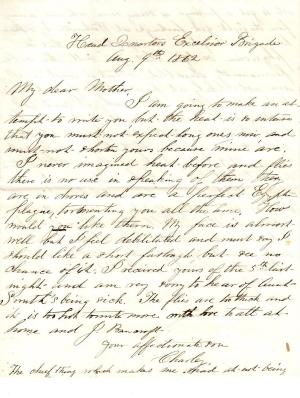 Head Quarters Excelsior Brigade
Aug. 9th 1862
My dear Mother,
I am going to make an at-
tempt to write you but the heat is so intense
that you must not expect long ones now, and
must not shorten yours because mine are.
I never imagined heat before and flies
there is no use in speaking of them
are in droves and are a perfect
plague, tormenting you all the time. How
would you like them. My face is almost
well but I feel debilitated and must say I
should like a short furlough but see no
chance of it. I received yours of the 5th last
night and am very sorry to hear of Aunt
Smith's being sick. The flies are so thick and
it is so hot to write more with love to all at
home and J Bancroft
Your affectionate son
Charley
The chief thing which makes me mad at not being